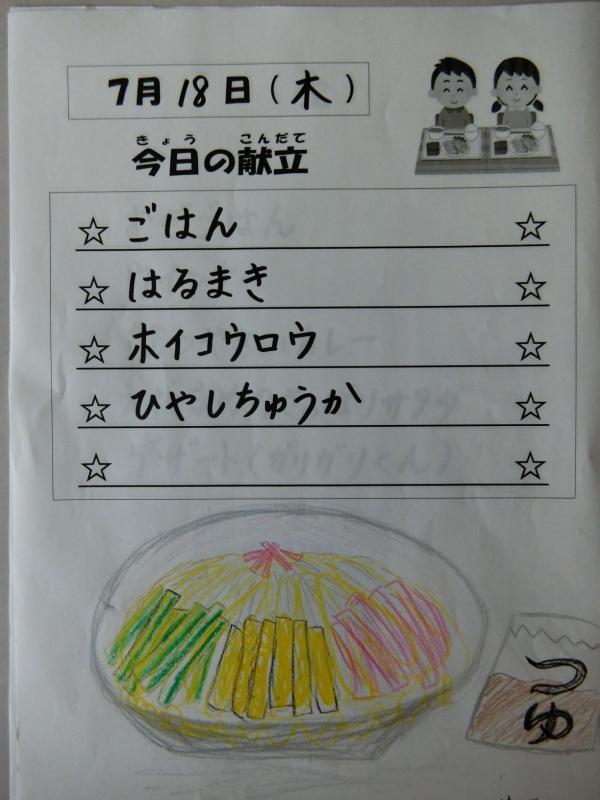 7月18日(木)
きょう こんだて
今日の献立
☆ ごはん ☆
☆ はるまき ☆
☆ ホイコウロウ ☆
☆ ひやしちゅうか ☆
☆ ☆
つゆ